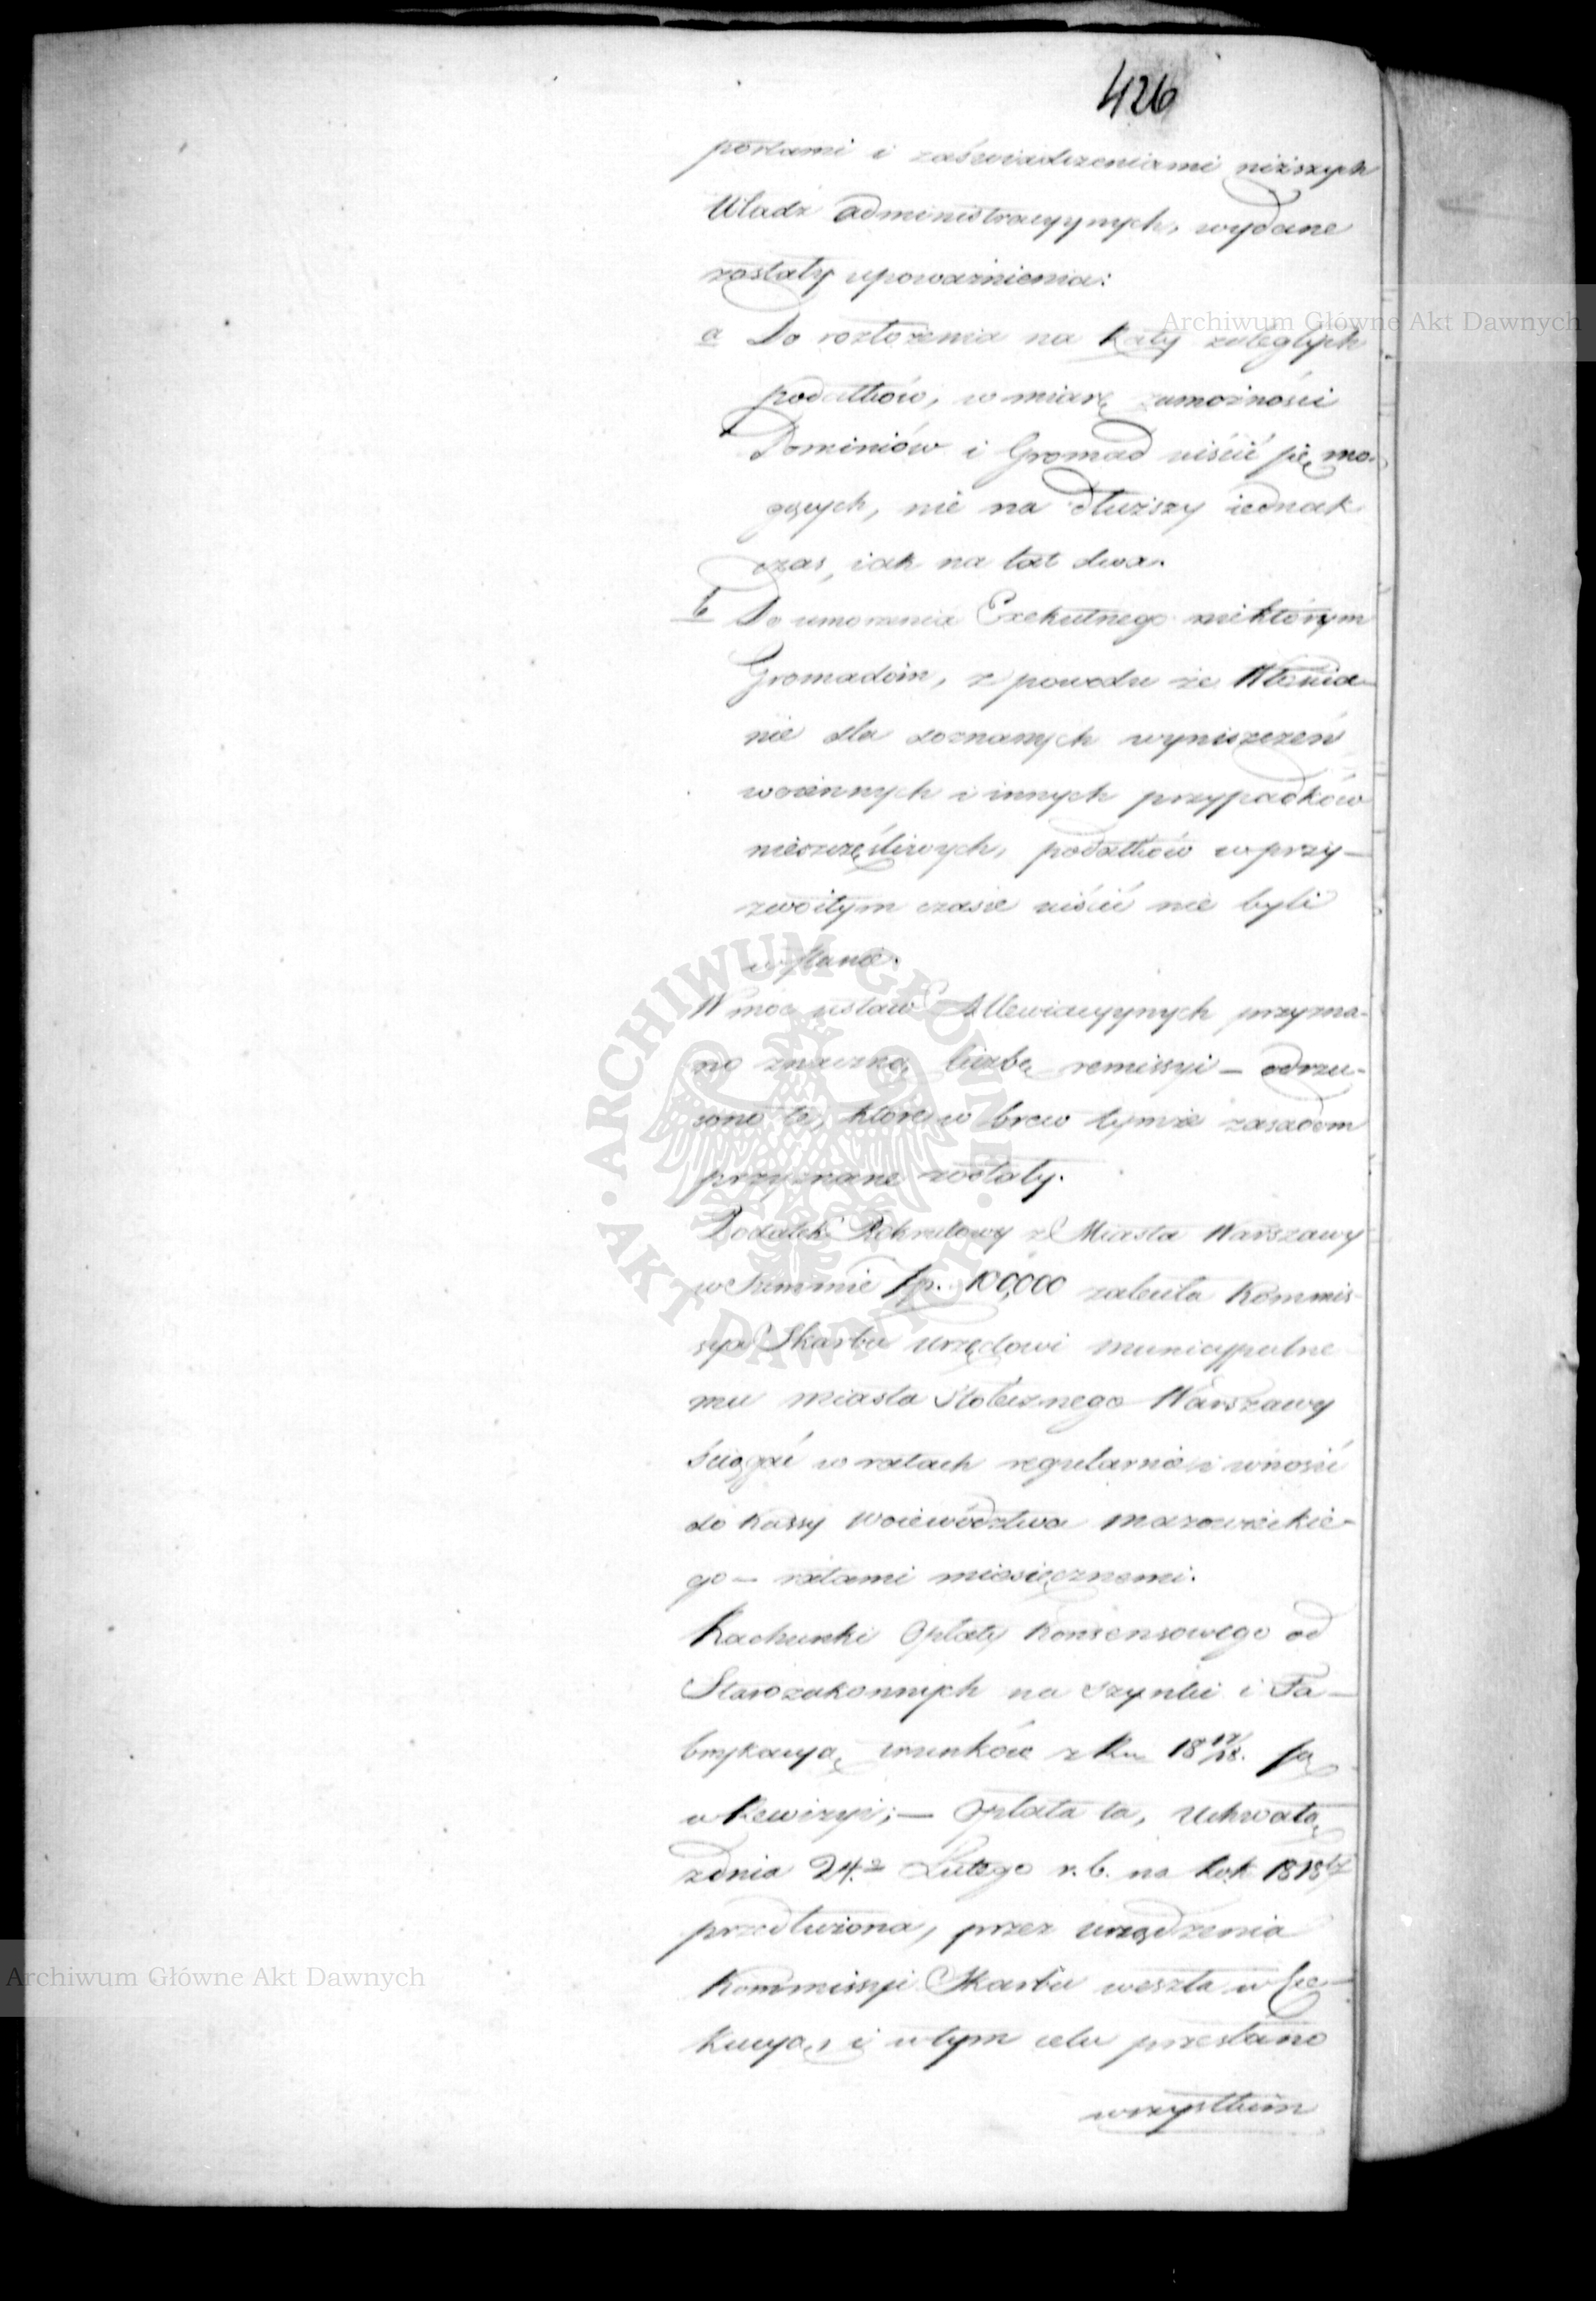 426
portami i zaświadczeniami niższych
Władz administracyynych, wydane
zostały upoważnienia:
a Do rozłożenia na Raty zaległych
podatków, w miarę zamożności
Dominiów i Gromad uiścić się mo-
gących, nie na dłuższy iednak
czas, iak na lat dwa.
b Do umorzenia Exekutnego niektórym
Gromadom, z powodu że Włościa-
nie dla doznanych wyniszczeń
woiennych i innych przypadków
nieszczęśliwych, podatków w przy-
zwoitym czasie uiścić nie byli
w stanie.
W moc ustaw Allewiacyynych przyzna-
no znaczną liczbę remissyi – odrzu-
cono te, które w brew tymże zasadom
przyznane zostały.
Podatek Rekrutowy z Miasta Warszawy
w Summie fp. 100,000 zaleciła Kommis-
sya Skarbu Urzędowi Municypalne
mu miasta Stołecznego Warszawy
ściągać w ratach regularnie i wnosić
do Kassy Woiewództwa Mazowieckie-
go – ratami miesięcznemi.
Rachunki Opłaty Konsensowego od
Starozakonnych na szynki i Fa-
brykacyą trunków z Ru 18 17/18. są
w Rewizyi; – Opłata ta, Uchwałą
z dnia 24.o Lutego r. b. na Rok 1818/
przedłużona, przez urządzenia
Kommissyi Skarbu weszła w Exe-
kucyą, i w tym celu przesłano
wszystkim
Archiwum Główne Akt Dawnych
Archiwum Główne Akt Dawnych
ARCHIWUM GŁÓWNE AKT DAWNYCH